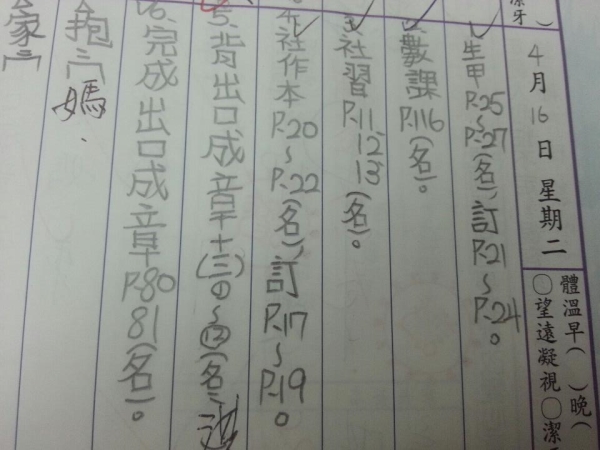 潔牙 )
4月16日 星期二
體溫早( )晚(
○望遠凝視○潔
生甲P.25~P.27(名),訂P.21~P.24。
2.數課P.116(名)。
3.社習P.11、12、13(名)。
4.社作本P.20~P.22(名),訂P.17~P.19。
5.背出口成章十(三)④~⑫(名)
6.完成出口成章P.80 81(名)。
抱一一媽.
家一一